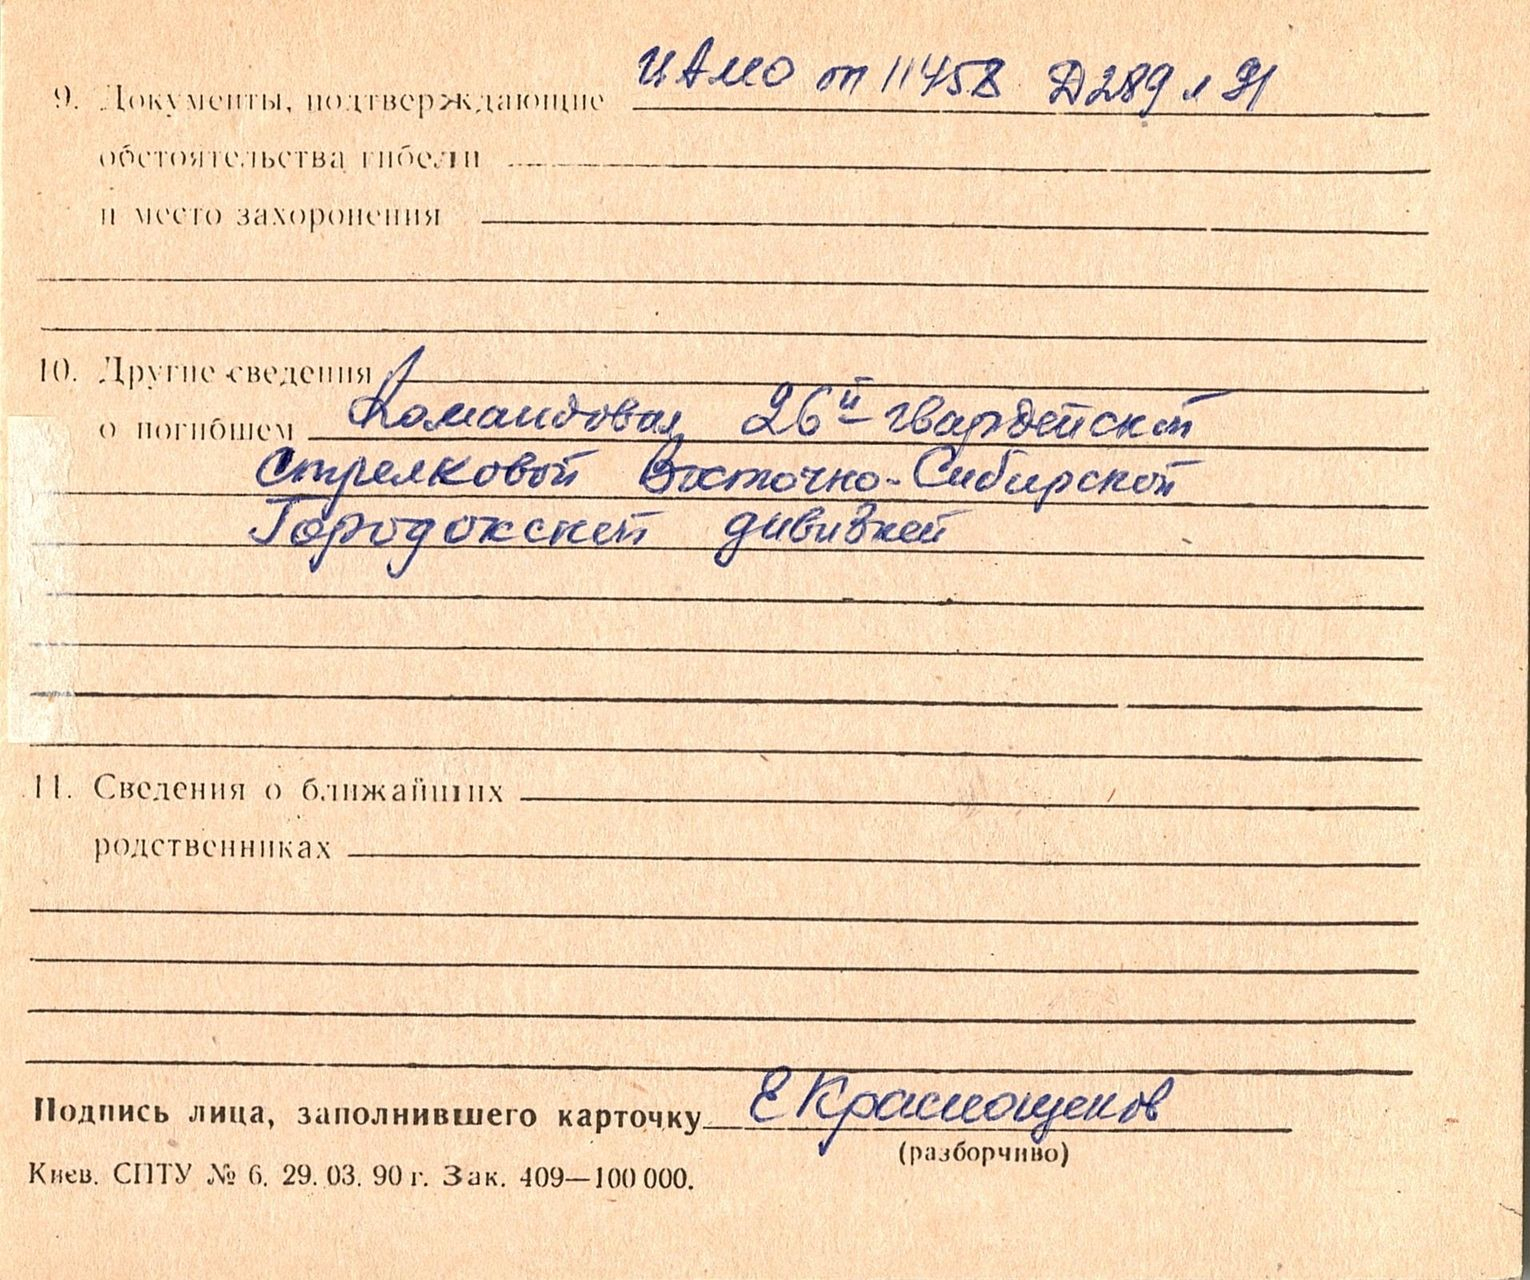 9. Документы, подтверждающие ЦАМО оп 11458 Д289 л 91
обстоятельства гибели
и место захоронения
10. Другие сведения
о погибшем Командовал 26й гвардейской
Стрелковой Восточно-Сибирской
Городокской дивизией
11. Сведения о ближайших
родственниках
Подпись лица, заполнившего карточку Е Краснощеков
(разборчиво)
Киев. СПТУ № 6. 29. 03. 90 г. Зак. 409—100 000.